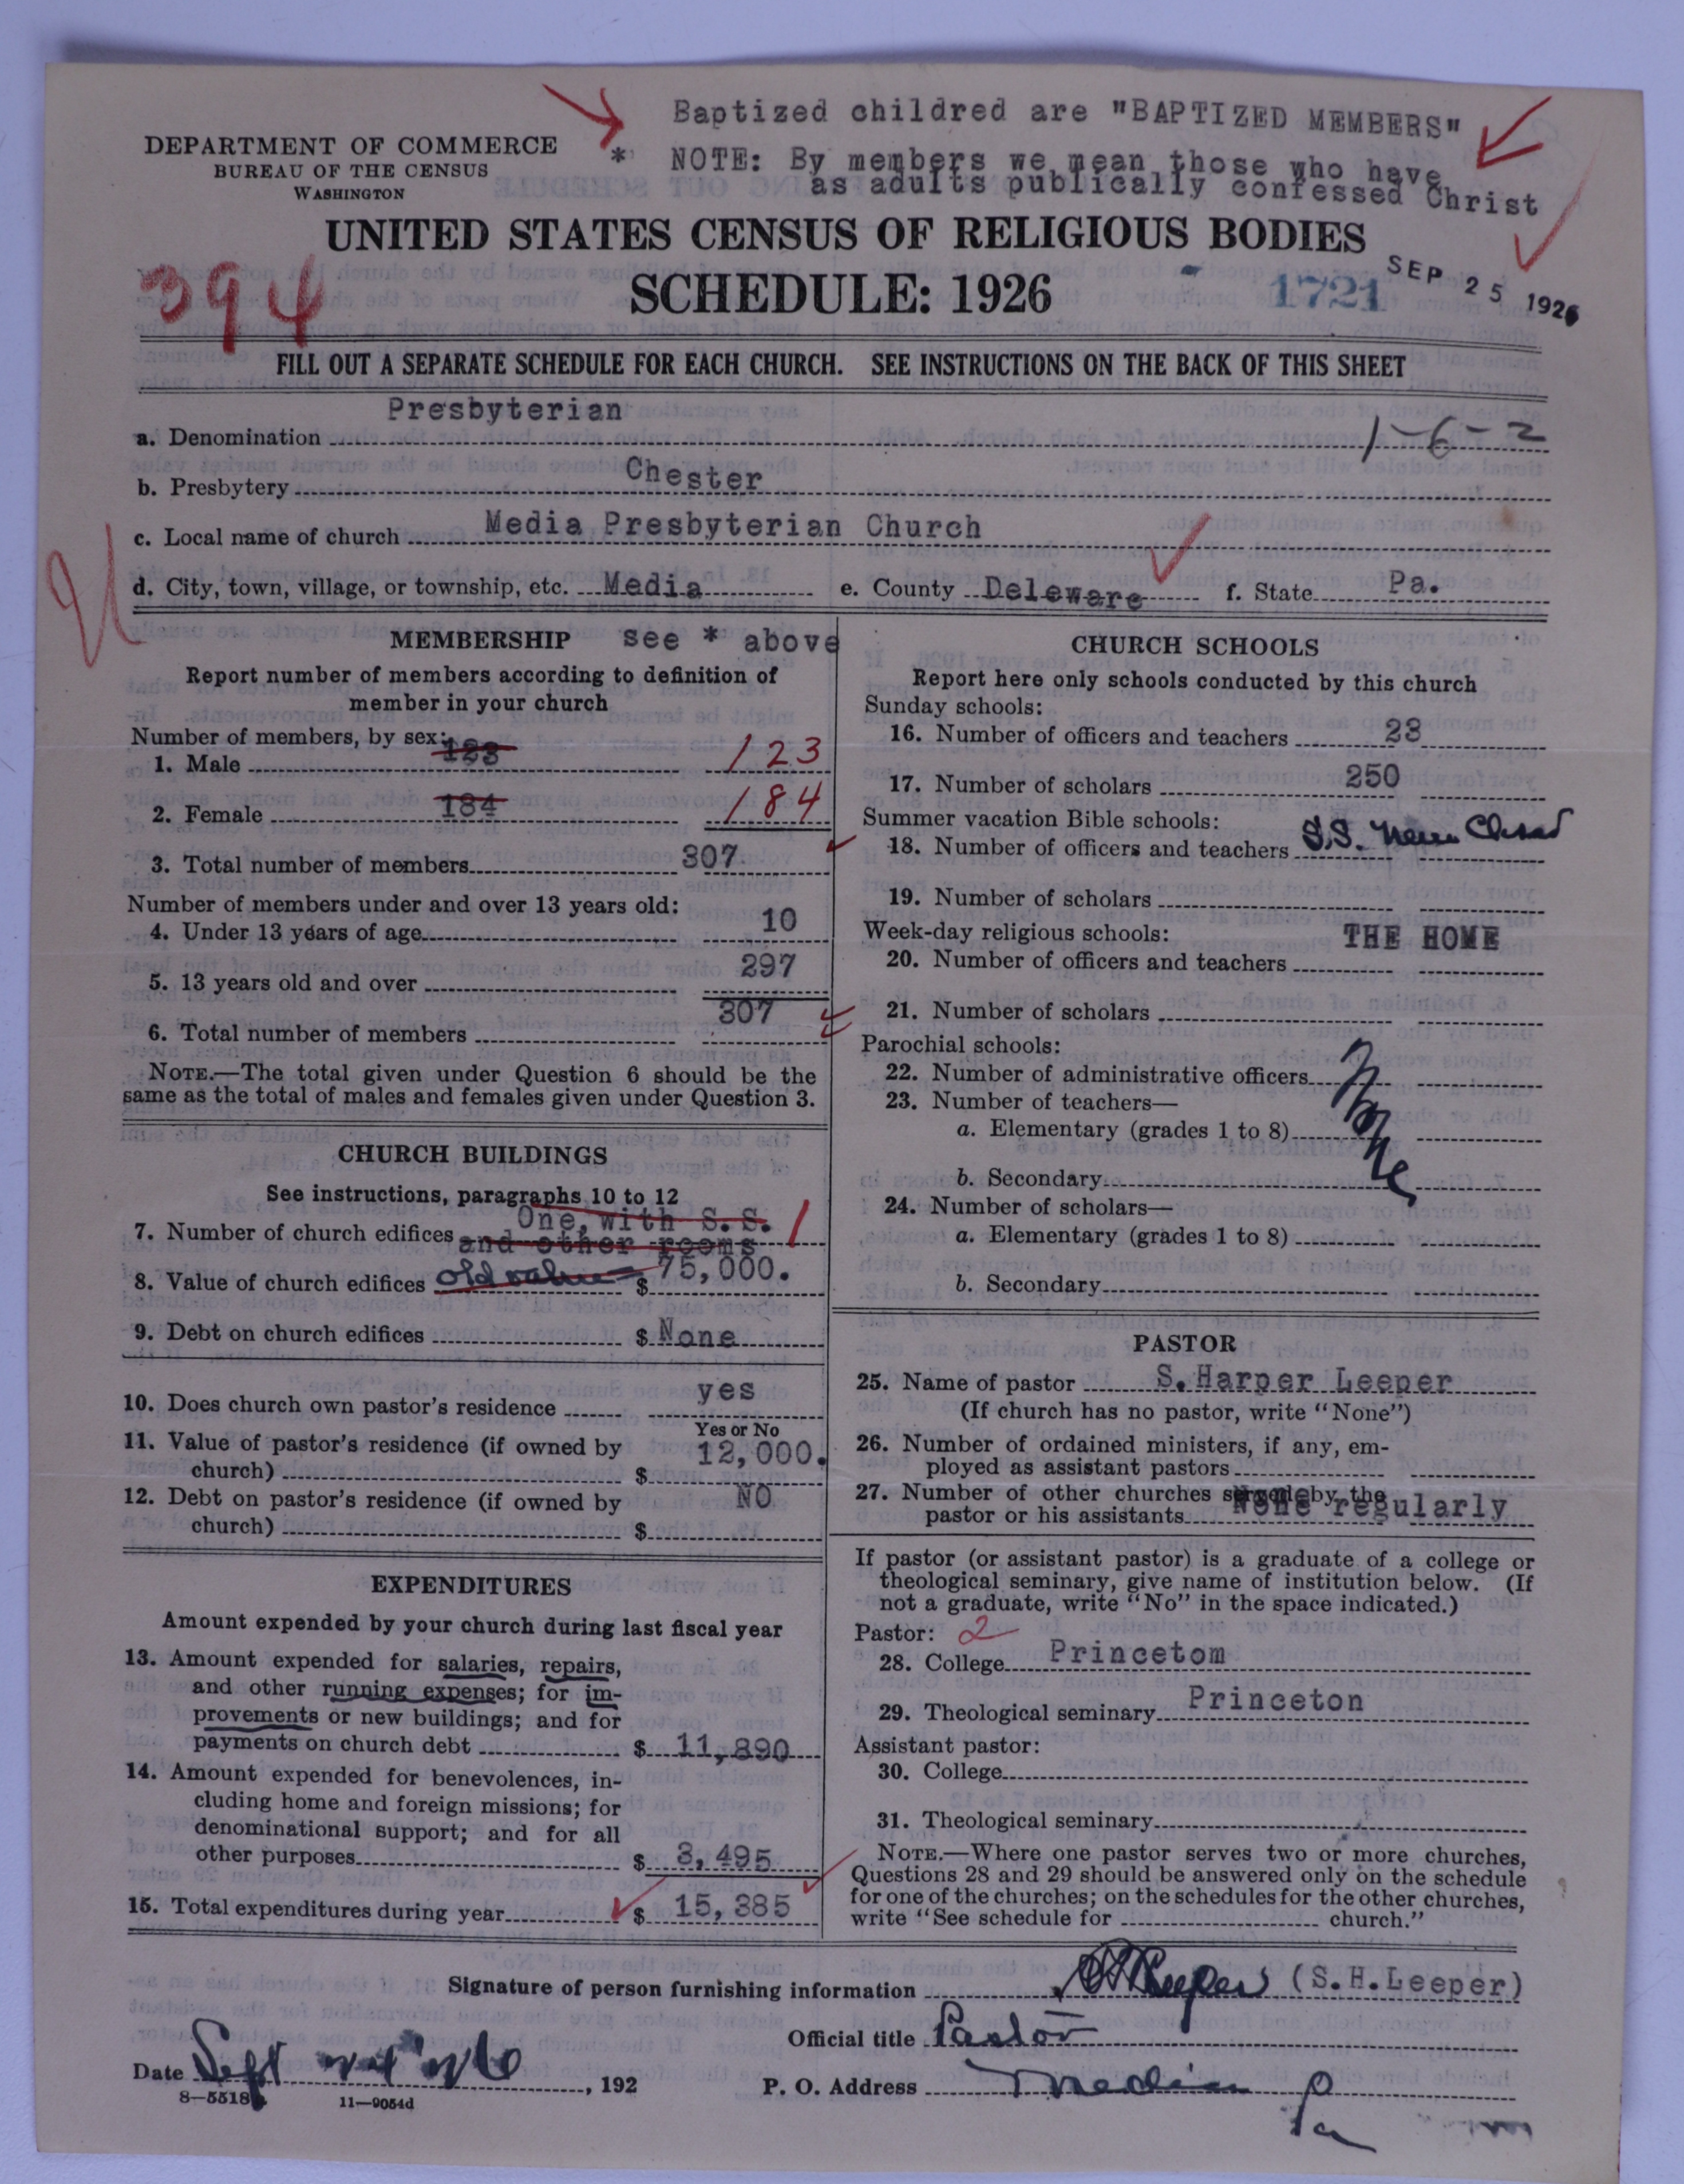 Baptized childred are "BAPTIZED MEMBERS"
* NOTE: By members we mean those who have
as adults publically confessed Christ
DEPARTMENT OF COMMERCE
BUREAU OF THE CENSUS
WASHINGTON
UNITED STATES CENSUS OF RELIGIOUS BODIES
394 SCHEDULE: 1926 1721 SEP 25 1926
FILL OUT A SEPARATE SCHEDULE FOR EACH CHURCH. SEE INSTRUCTIONS ON THE BACK OF THIS SHEET
a. Denomination Presbyterian 1-6-2
b. Presbytery Chester
c. Local name of church Media Presbyterian Church
d. City, town, village, or township, etc. Media e. County Deleware f. State Pa.
MEMBERSHIP see * above
Report number of members according to definition of
member in your church
Number of members, by sex:
1. Male 123 123
2. Female 184 184
3. Total number of members 307
Number of members under and over 13 years old:
4. Under 13 years of age 10
5. 13 years old and over 297
6. Total number of members 307
NOTE.—The total given under Question 6 should be the
same as the total of males and females given under Question 3.
CHURCH BUILDINGS
See instructions, paragraphs 10 to 12
7. Number of church edifices One, with S. S. 1
and other rooms
8. Value of church edifices old value $ 75,000.
9. Debt on church edifices $ None
10. Does church own pastor's residence yes
Yes or No
11. Value of pastor's residence (if owned by
church) $ 12,000.
12. Debt on pastor's residence (if owned by
church) $ NO
EXPENDITURES
Amount expended by your church during last fiscal year
13. Amount expended for salaries, repairs,
and other running expenses; for im-
provements or new buildings; and for
payments on church debt $ 11,890
14. Amount expended for benevolences, in-
cluding home and foreign missions; for
denominational support; and for all
other purposes $ 3,495
15. Total expenditures during year $ 15,385
CHURCH SCHOOLS
Report here only schools conducted by this church
Sunday schools:
16. Number of officers and teachers 23
17. Number of scholars 250
Summer vacation Bible schools:
18. Number of officers and teachers S.S. never Closed
19. Number of scholars
Week-day religious schools: THE HOME
20. Number of officers and teachers
21. Number of scholars
Parochial schools:
22. Number of administrative officers None
23. Number of teachers—
a. Elementary (grades 1 to 8)
b. Secondary
24. Number of scholars—
a. Elementary (grades 1 to 8)
b. Secondary
PASTOR
25. Name of pastor S. Harper Leeper
(If church has no pastor, write "None")
26. Number of ordained ministers, if any, em-
ployed as assistant pastors
27. Number of other churches served by the
pastor or his assistants None regularly
If pastor (or assistant pastor) is a graduate of a college or
theological seminary, give name of institution below. (If
not a graduate, write "No" in the space indicated.)
Pastor: 2
28. College Princetom
29. Theological seminary Princeton
Assistant pastor:
30. College
31. Theological seminary
NOTE.—Where one pastor serves two or more churches,
Questions 28 and 29 should be answered only on the schedule
for one of the churches; on the schedules for the other churches,
write "See schedule for church."
Signature of person furnishing information S H Leeper (S.H.Leeper)
Official title Pastor
Date Sept , 192
P. O. Address Media Pa
8—5518 11—9054d